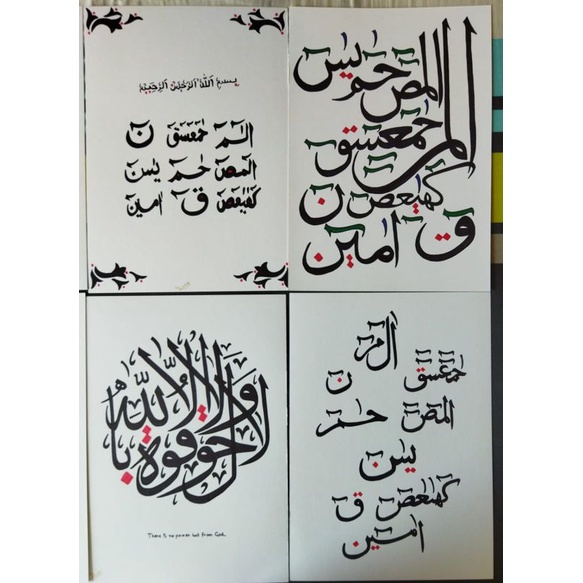 بسم الله الرحمن الرحيم
الم حمعسق ن
المص حم يسن
كهيعص ق امين
المص حم يسن
المر حمعسق
كهيعص ن
ق امين
لا حول ولا قوة الا بالله
There is no power but from God.
المر
حمعسق ن
المص حم
يسن
كهيعص ق
امين